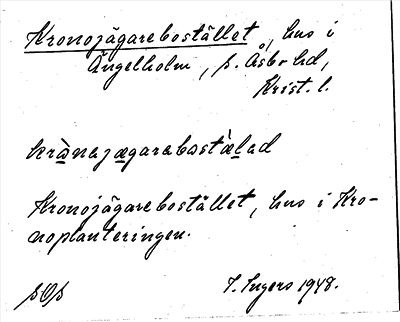 Kronojägarebostället, hus i
Ängelholm, s. Åsbo hd,
Krist. l.
krònajægarebost`ælad
Kronojägarebostället, hus i Kro-
noplanteringen.
I. Ingers 1948.